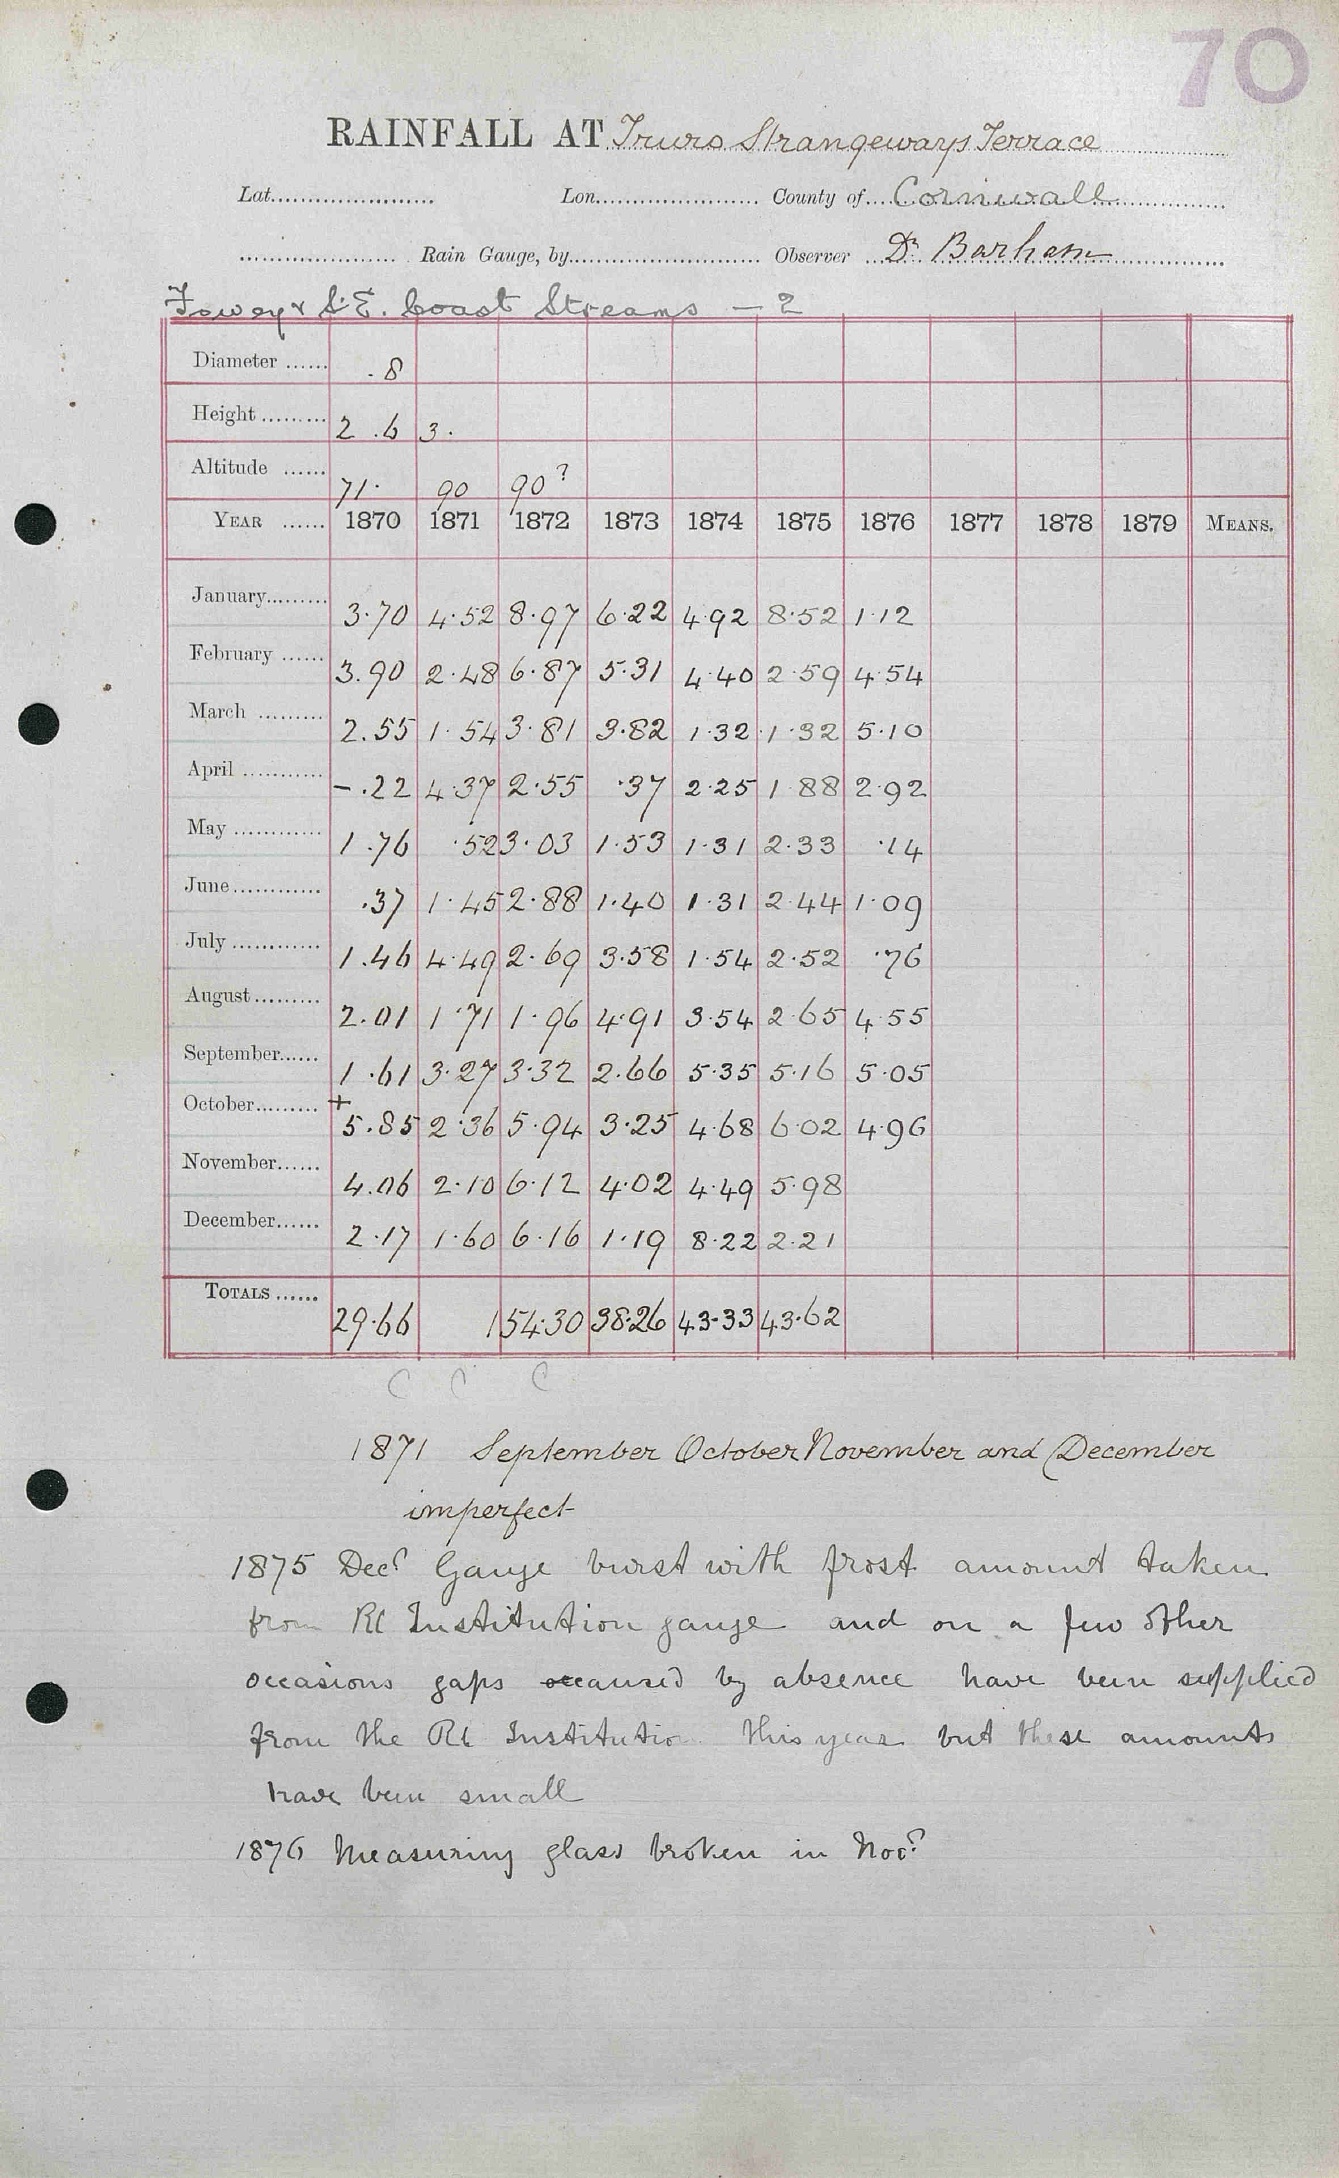 70
RAINFALL AT Truro Strangeways Terrace
Lat...................... Lon...................... County of.... Cornwall
..................... Rain Gauge, by......................... Observer Dr. Barham
Fowey & S.E. Coast Streams — 2
Diameter ...... .8
Height ......... 2 .6 3.
Altitude ...... 71. 90 90?
YEAR ...... 1870 1871 1872 1873 1874 1875 1876 1877 1878 1879 MEANS.
January......... 3.70 4.52 8.97 6.22 4.92 8.52 1.12
February ...... 3.90 2.48 6.87 5.31 4.40 2.59 4.54
March ......... 2.55 1.54 3.81 3.82 1.32 1.32 5.10
April ........... -.22 4.37 2.55 .37 2.25 1.88 2.92
May ............ 1.76 .52 3.03 1.53 1.31 2.33 .14
June............ .37 1.45 2.88 1.40 1.31 2.44 1.09
July ............ 1.46 4.49 2.69 3.58 1.54 2.52 .76
August......... 2.01 1.71 1.96 4.91 3.54 2.65 4.55
September...... 1.61 3.27 3.32 2.66 5.35 5.16 5.05
October......... + 5.85 2.36 5.94 3.25 4.68 6.02 4.96
November...... 4.06 2.10 6.12 4.02 4.49 5.98
December...... 2.17 1.60 6.16 1.19 8.22 2.21
TOTALS ...... 29.66 1 54.30 38.26 43.33 43.62
C C C
1871 September October November and December
imperfect
1875 Decr Gauge burst with frost amount taken
from Rl Institution gauge and on a few other
occasions gaps caused by absence have been supplied
from the Rl Institution this year but these amounts
have been small
1876 Measuring glass broken in Novr